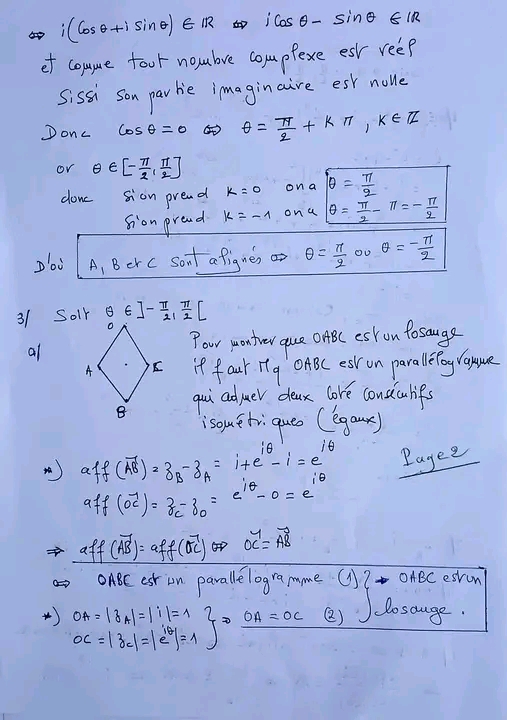 ⇔ i(Cosθ + i sinθ) ∈ IR ⇔ i Cosθ - sinθ ∈ IR
et comme tout nombre complexe est réel
Sissi son partie imaginaire est nulle
Donc cosθ = 0 ⇔ θ = π/2 + Kπ, K∈Z
or θ ∈ [-π/2, π/2]
donc si on prend K=0 on a θ = π/2
si on prend K=-1 on a θ = π/2 - π = -π/2
D'où A, B et C sont alignés ⇔ θ = π/2 ou θ = -π/2
3/ Soit θ ∈ ]-π/2, π/2[
a/
O
A
C
B
Pour montrer que OABC est un losange
il faut Mq OABC est un parallélogramme
qui admet deux coté consécutifs
isométriques (égaux)
Page 2
*) aff(AB⃗) = z_B - z_A = i + e^{iθ} - i = e^{iθ}
aff(OC⃗) = z_C - z_O = e^{iθ} - 0 = e^{iθ}
⇒ aff(AB⃗) = aff(OC⃗) ⇔ OC⃗ = AB⃗
⇔ OABC est un parallélogramme (1) } → OABC est un
*) OA = |z_A| = |i| = 1 } ⇒ OA = OC (2) } losange.
OC = |z_C| = |e^{iθ}| = 1